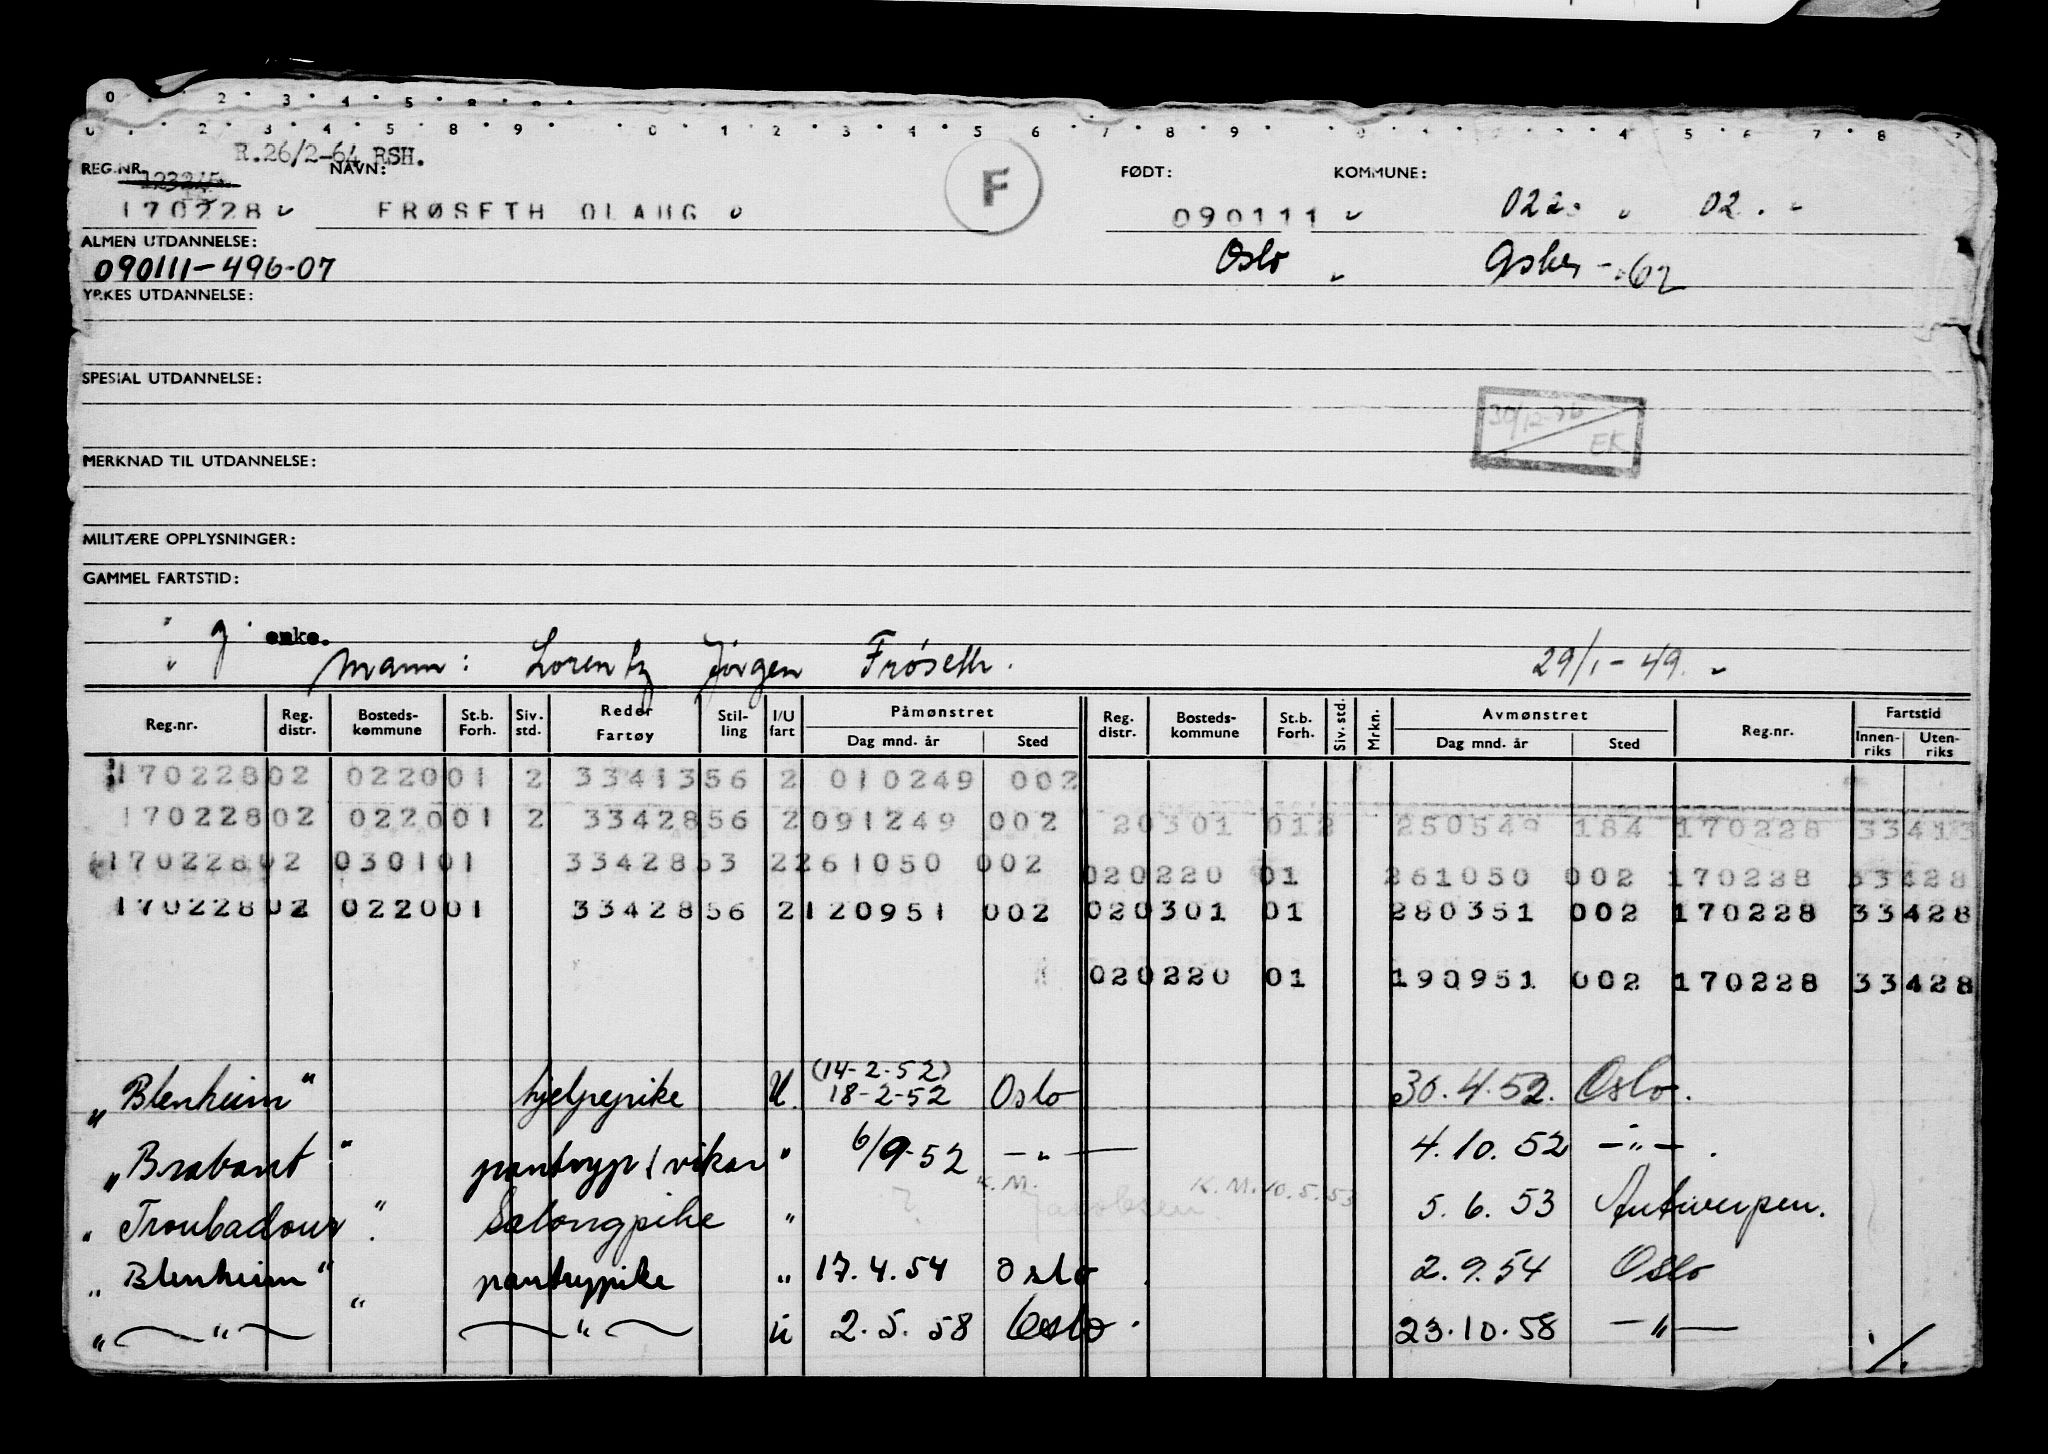 R.26/2-64 RSH.
REG.NR. NAVN: F FØDT: KOMMUNE:
170228 FRØSETH OLAUG 090111 0220 02
ALMEN UTDANNELSE: Oslo Asker - 62
090111-496-07
YRKES UTDANNELSE:
SPESIAL UTDANNELSE:
30/12-76 EK
MERKNAD TIL UTDANNELSE:
MILITÆRE OPPLYSNINGER:
GAMMEL FARTSTID:
g enke.
Mann: Lorentz Jörgen Frøseth. 29/1-49.
Reg.nr. Reg. distr. Bosteds-kommune St.b. Forh. Siv. std. Reder Fartøy Stil-ling I/U fart Påmønstret Dag mnd. år Sted Reg. distr. Bosteds-kommune St.b. Forh. Siv. std. Mrkn. Avmønstret Dag mnd. år Sted Reg.nr. Fartstid Innen-riks Uten-riks
170228 02 0220 01 2 33413 56 2 010249 002
170228 02 0220 01 2 33428 56 2 091249 002 20301 012 250549 184 170228 33413
170228 02 0301 01 33428 53 2 261050 002 020220 01 261050 002 170228 33428
170228 02 0220 01 33428 56 2 120951 002 020301 01 280351 002 170228 33428
020220 01 190951 002 170228 33428
(14-2-52)
"Blenheim" hjelpepike U. 18-2-52 Oslo 30.4.52. Oslo.
"Brabant" pantryp/vikar " 6/9-52 —"— 4.10.52 —"—.
K.M. Jacobsen K.M. 10.5.53
"Troubadour". Salongpike " 5.6.53 Antwerpen.
"Blenheim" pantrypike " 17.4.54 Oslo 2.9.54 Oslo
" —"— " —"— ü 2.5.58 Oslo. 23.10.58 —"— ./.